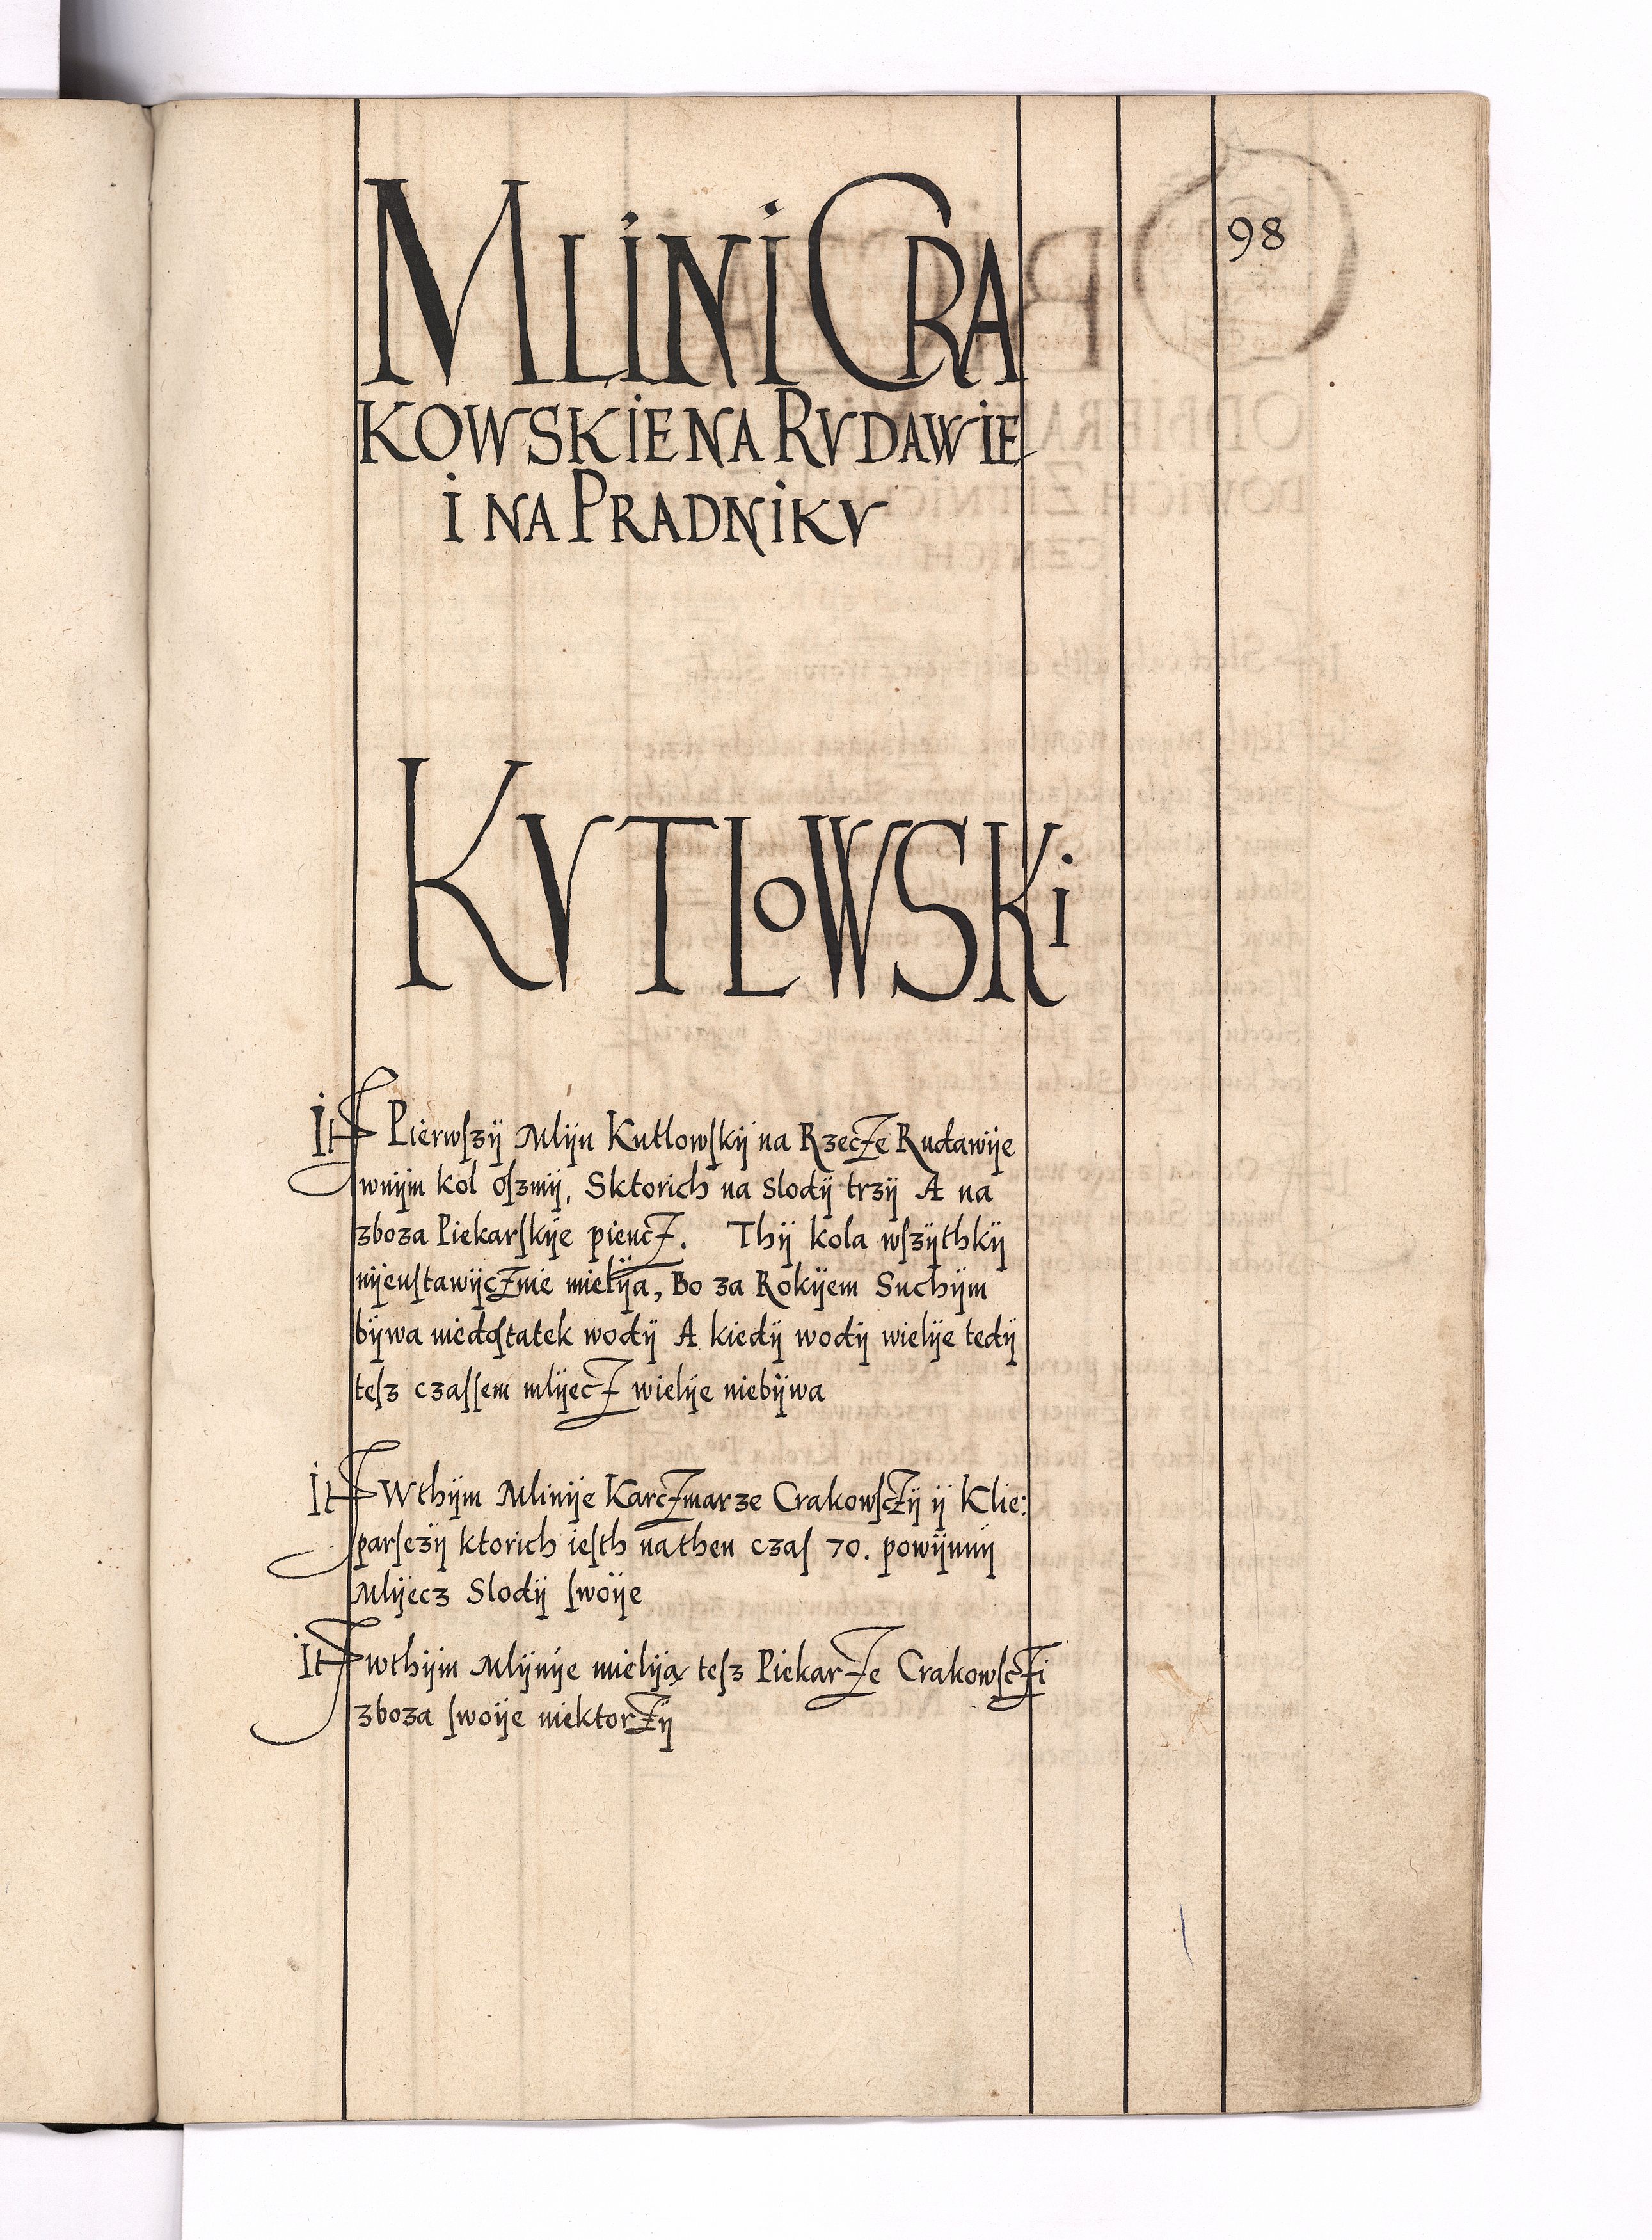 98
MLINI CRA
KOWSKIE NA RVDAWIE
I NA PRADNIKV
KVTLOWSKI
It Pierwſzÿ Mlÿn Kutlowſkÿ na Rzecże Rudawÿe
wnÿm kol oſzmÿ, Sktorich na slodÿ trzÿ A na
zboza Piekarſkÿe piencż. Thÿ kola wſzÿthkÿ
nÿeuſtawÿcżnie mielÿa, Bo za Rokÿem Suchÿm
bÿwa niedoſtatek wodÿ A kiedÿ wodÿ wielÿe tedÿ
teſz czaſſem mlÿecż wielÿe niebÿwa
It Wthÿm Mlinÿe Karcżmarze Crakowſcżÿ ÿ Klie:
parſczÿ ktorich ieſth nathen czaſ 70. powÿnnÿ
Mlÿecz Slodÿ ſwoÿe
It wthÿm Mlÿnÿe mielÿą teſz Piekarże Crakowſcżi
zboza ſwoÿe niektorżÿ